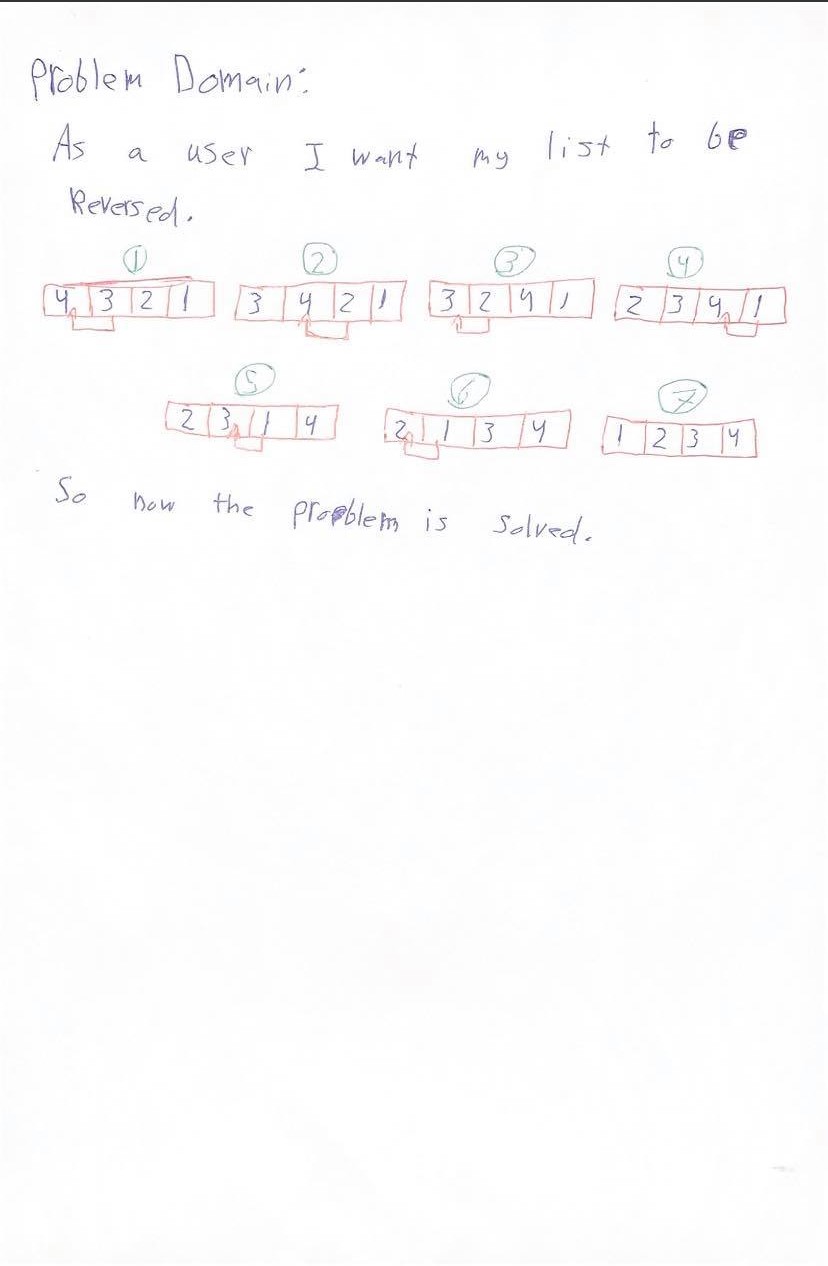 Problem Domain:
As a user I want my list to be
Reversed.
1 2 3 4
4 3 2 1 3 4 2 1 3 2 4 1 2 3 4 1
5 6 7
2 3 1 4 2 1 3 4 1 2 3 4
So now the problem is solved.